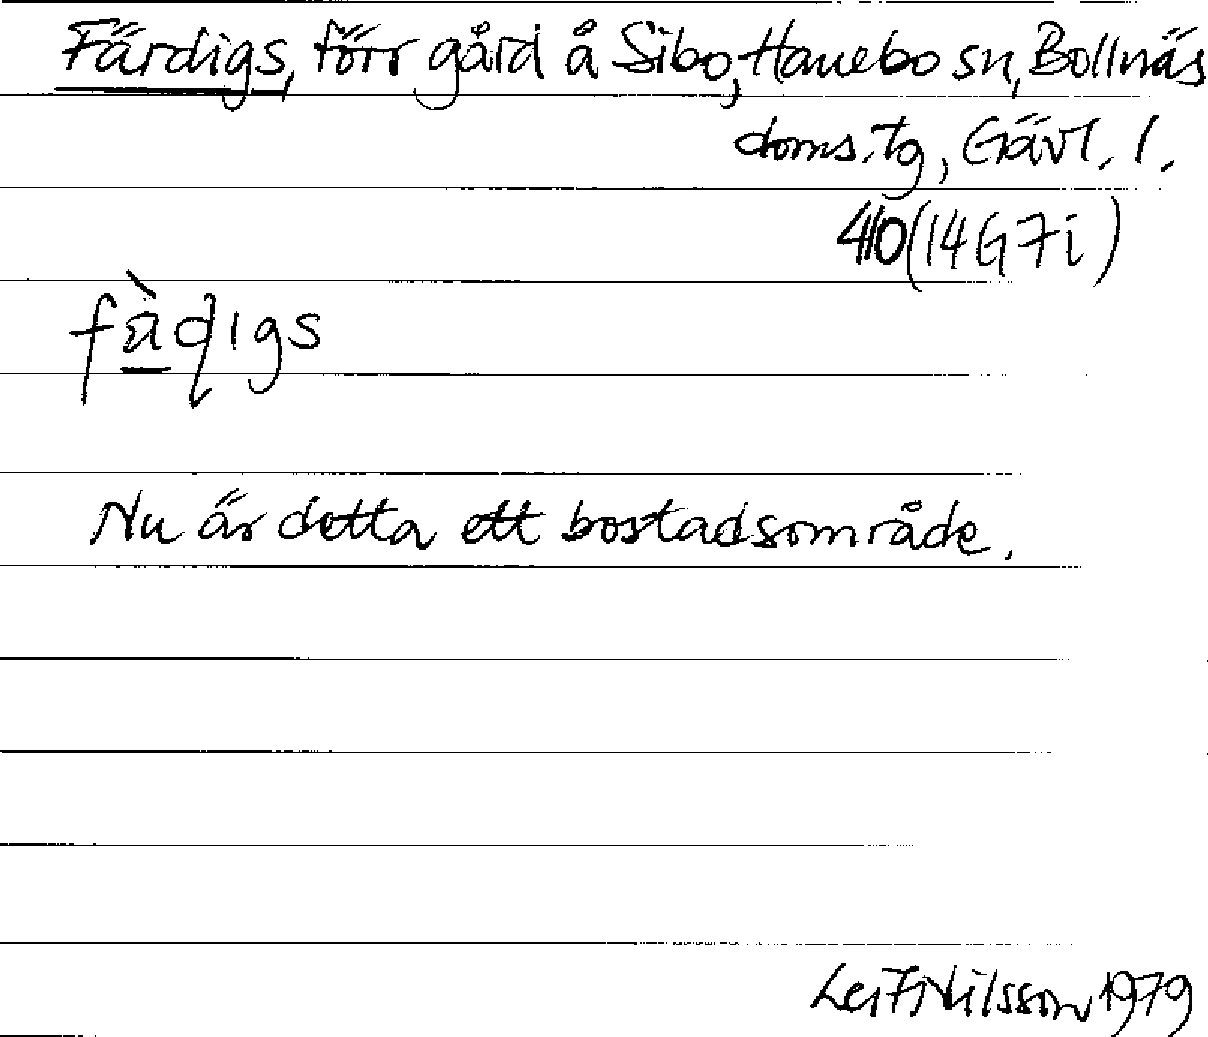 Färdigs, förr gård å Sibo, Hanebo sn, Bollnäs
doms.tg, Gävl. l.
410 (14G7i)
fàdigs
Nu är detta ett bostadsområde.
Leif Nilsson 1979